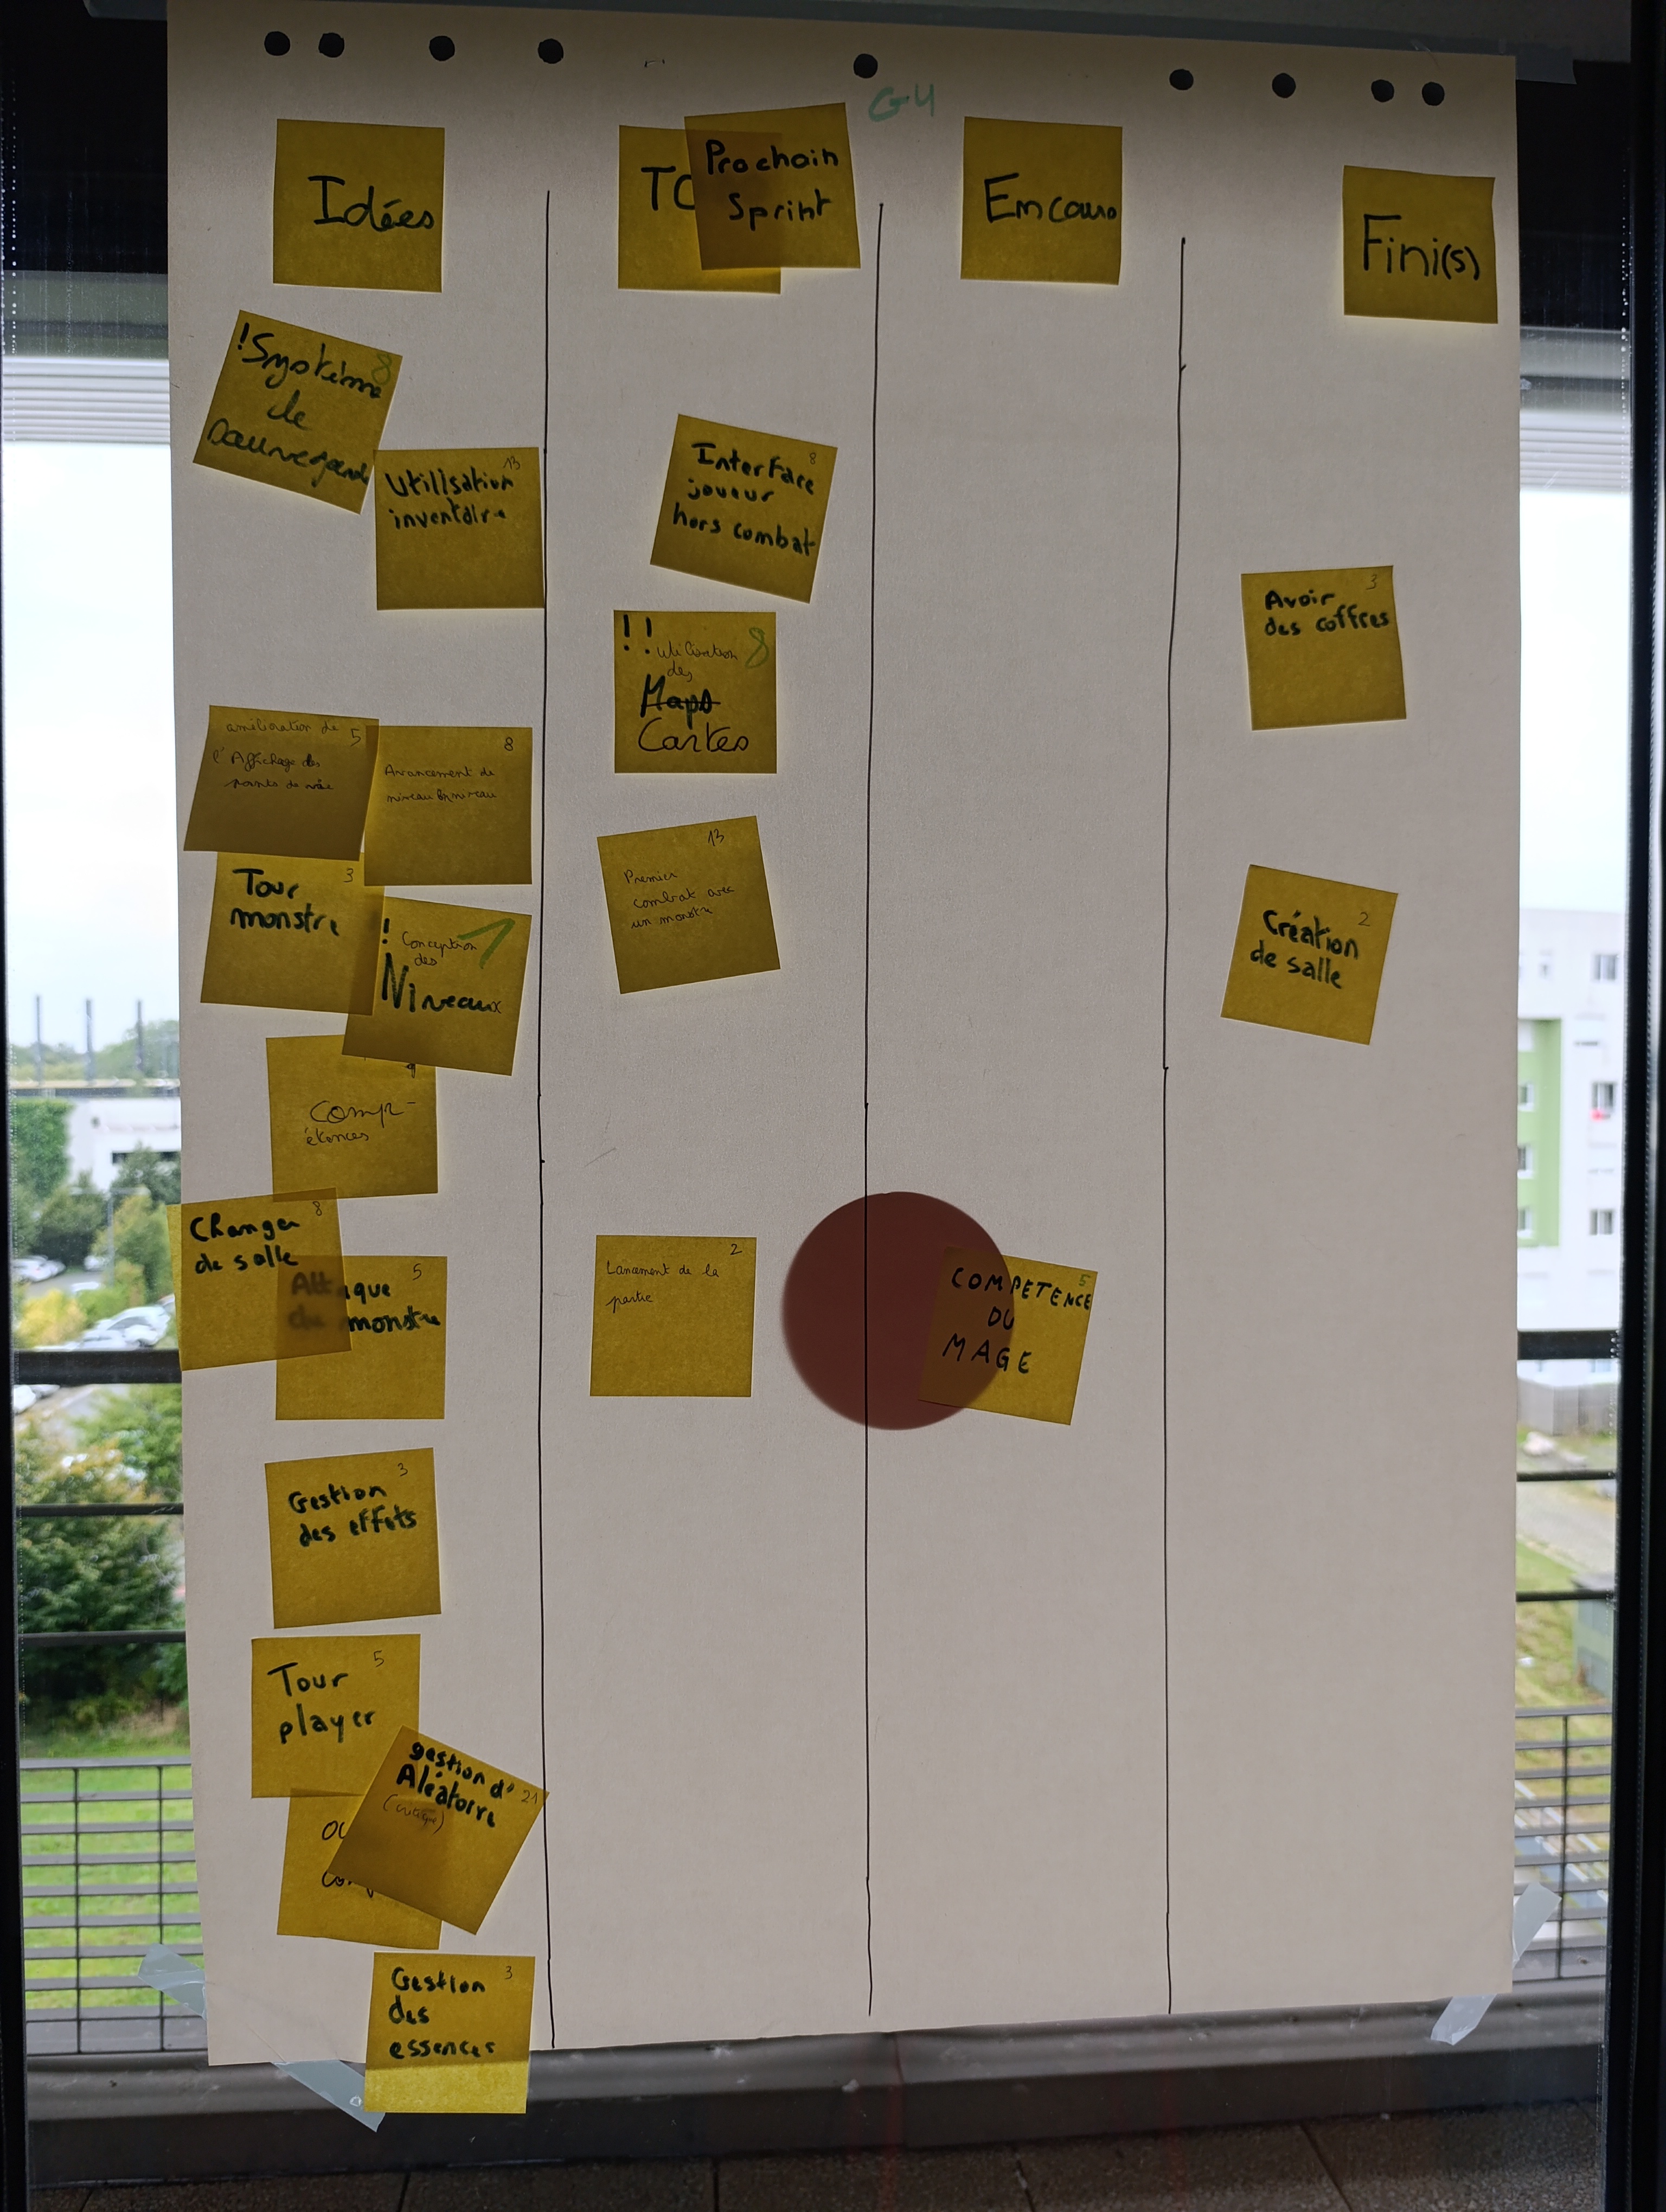 G4
Idées
TO
Prochain
Sprint
En cours
Fini(s)
! Système 8
de
sauvegarde
13
Utilisation
inventaire
amélioration de 5
l'Affichage des
points de vie
8
Avancement de
niveau en niveau
Tour 3
monstre
! Conception
des
Niveaux
Comp-
étences
8
Changer
de salle
5
Attaque
du monstre
3
Gestion
des effets
5
Tour
player
gestion d'
Aléatoire 21
(critique)
Gestion 3
des
essences
Interface 8
joueur
hors combat
!! utilisation 8
des
Maps
Cartes
13
Premier
combat avec
un monstre
2
Lancement de la
partie
COMPETENCE 5
DU
MAGE
3
Avoir
des coffres
2
Création
de salle